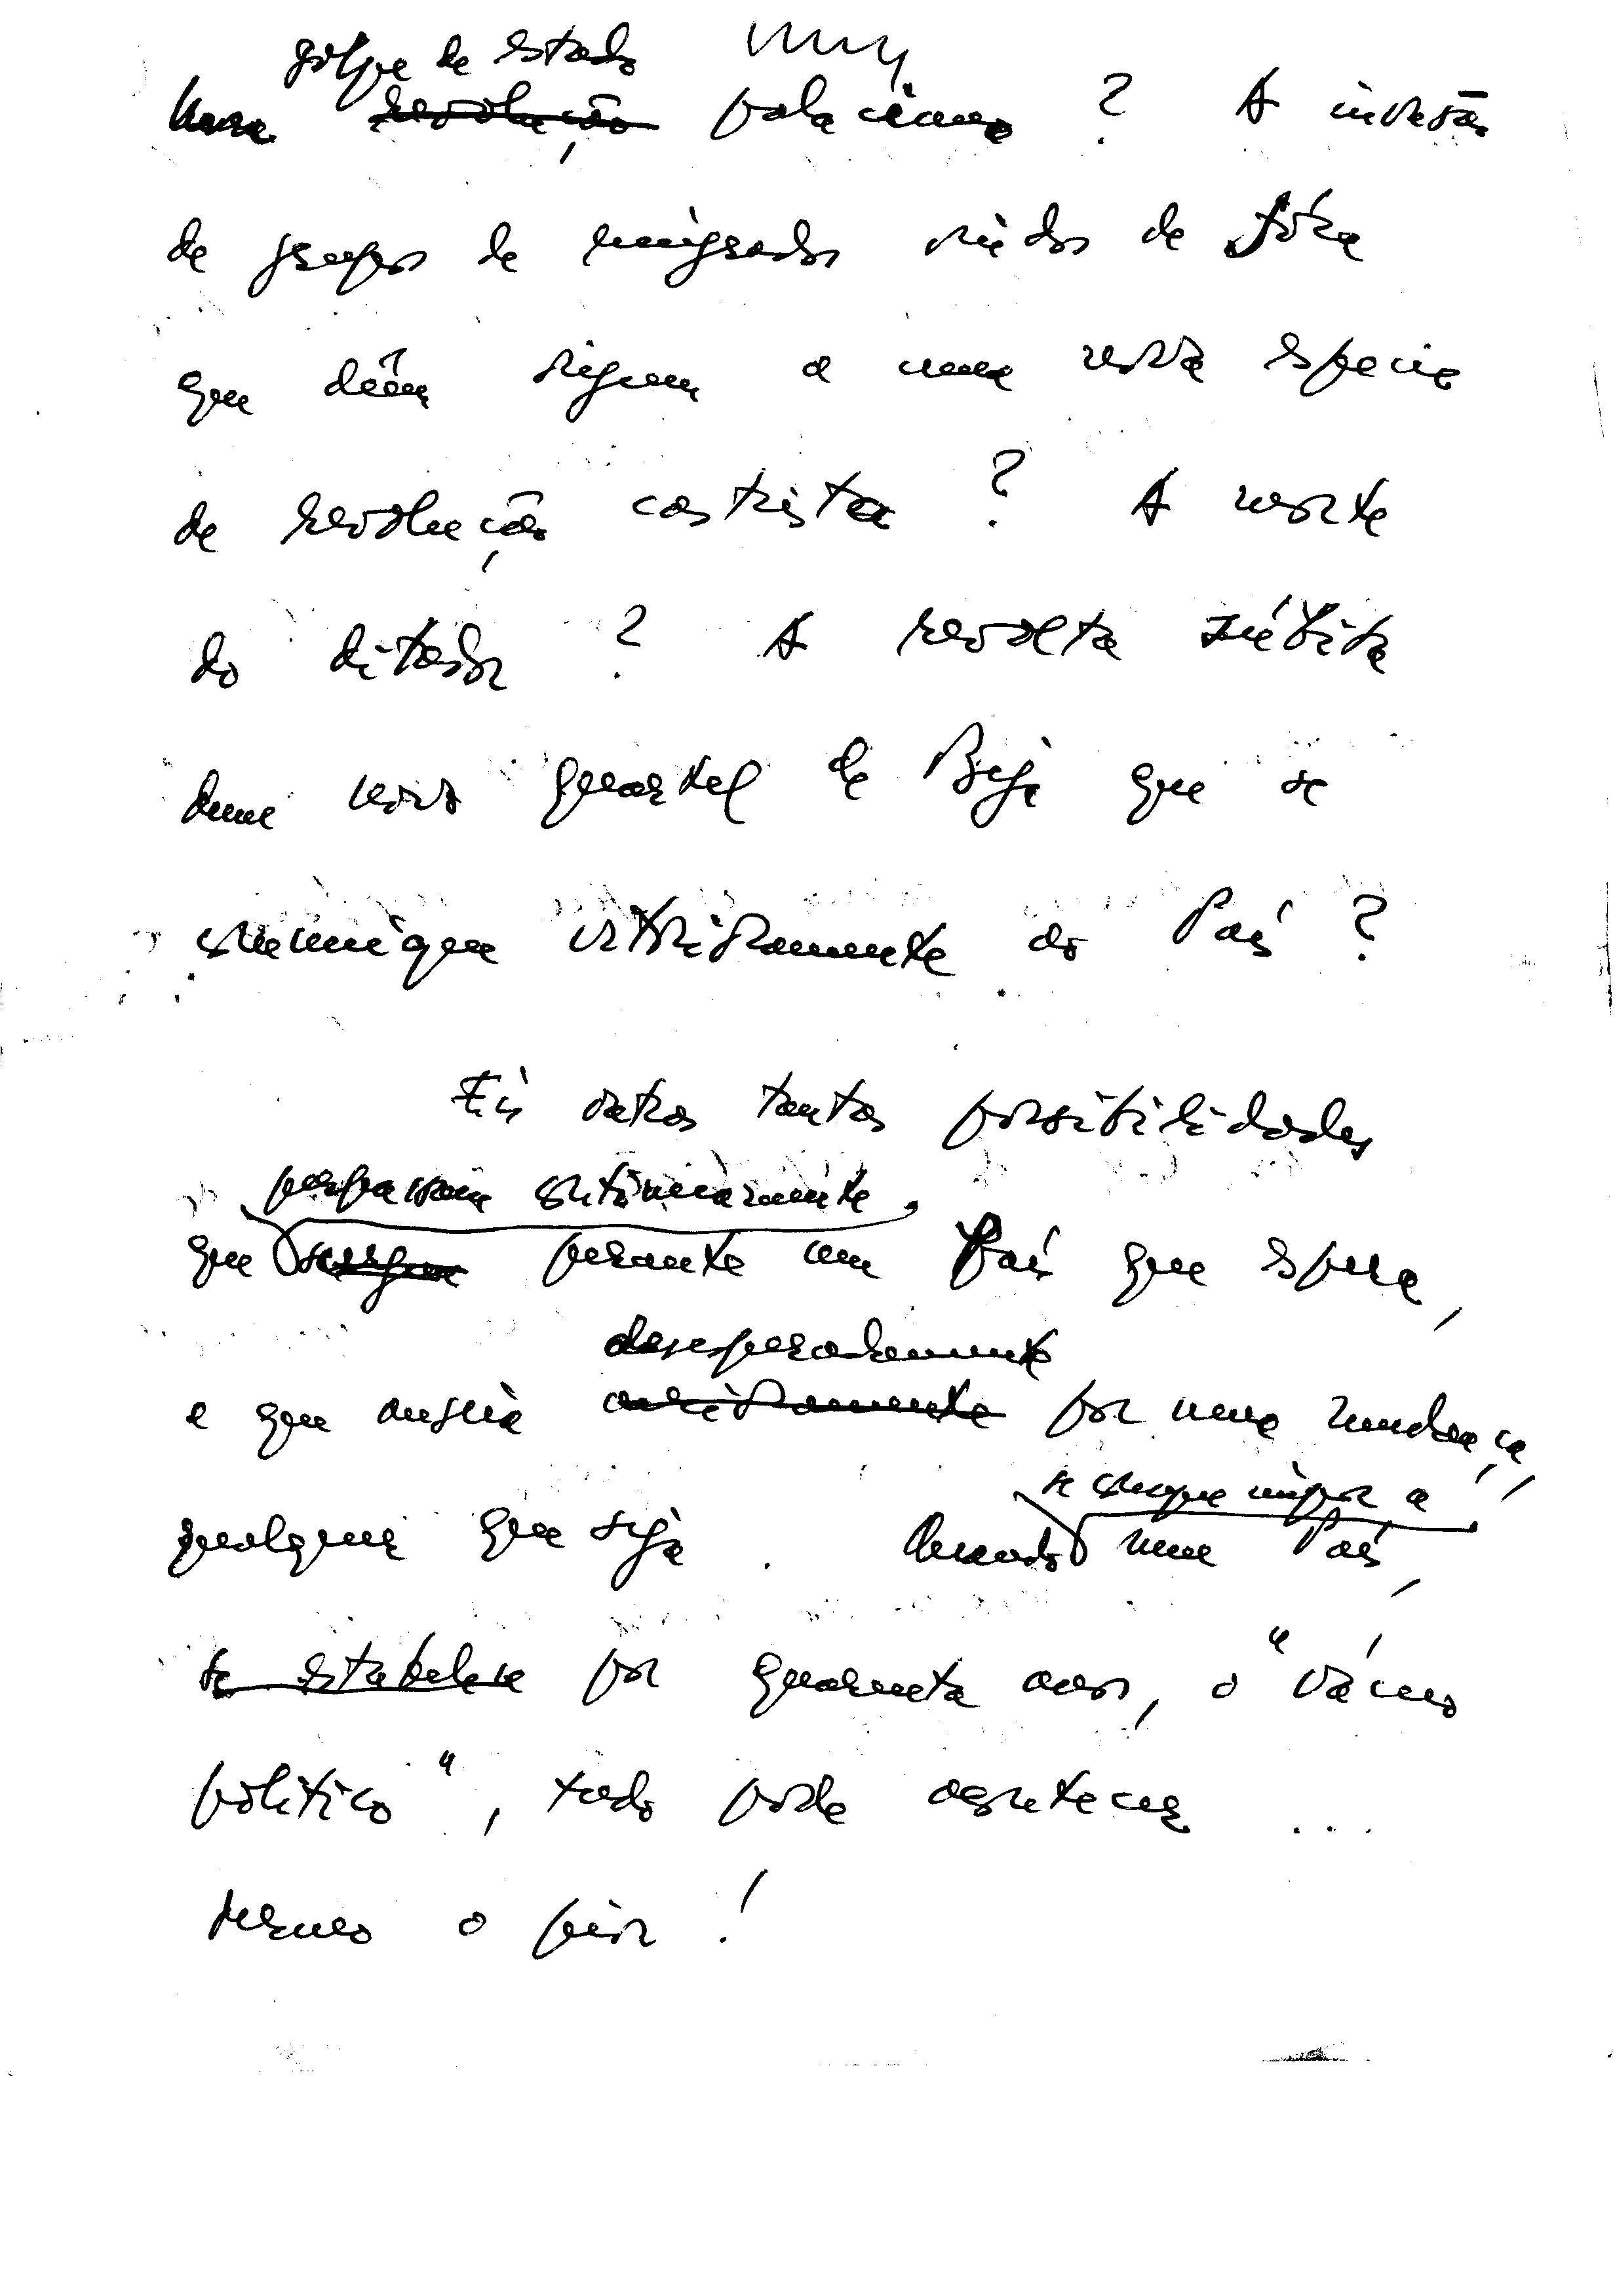 golpe de estado
Uma revolução palaciano ? A invasão
de grupos de emigrados vindos de fóra
que dêem origem a uma nova especie
de revolução castrista ? A morte
do ditador ? A revolta súbita
dum novo quartel de Beja que se
comunique vitoriosamente ao País ?
Eis outras tantas possibilidades
perpassam continuamente
que surgem perante um País que espera,
desesperadamente
e que anseia ansiosamente por uma mudança,
se consegue impor a
qualquer que seja . Quando um País,
se estabelece por quarenta anos, o "vácuo
político", tudo pode acontecer ...
mesmo o pior !